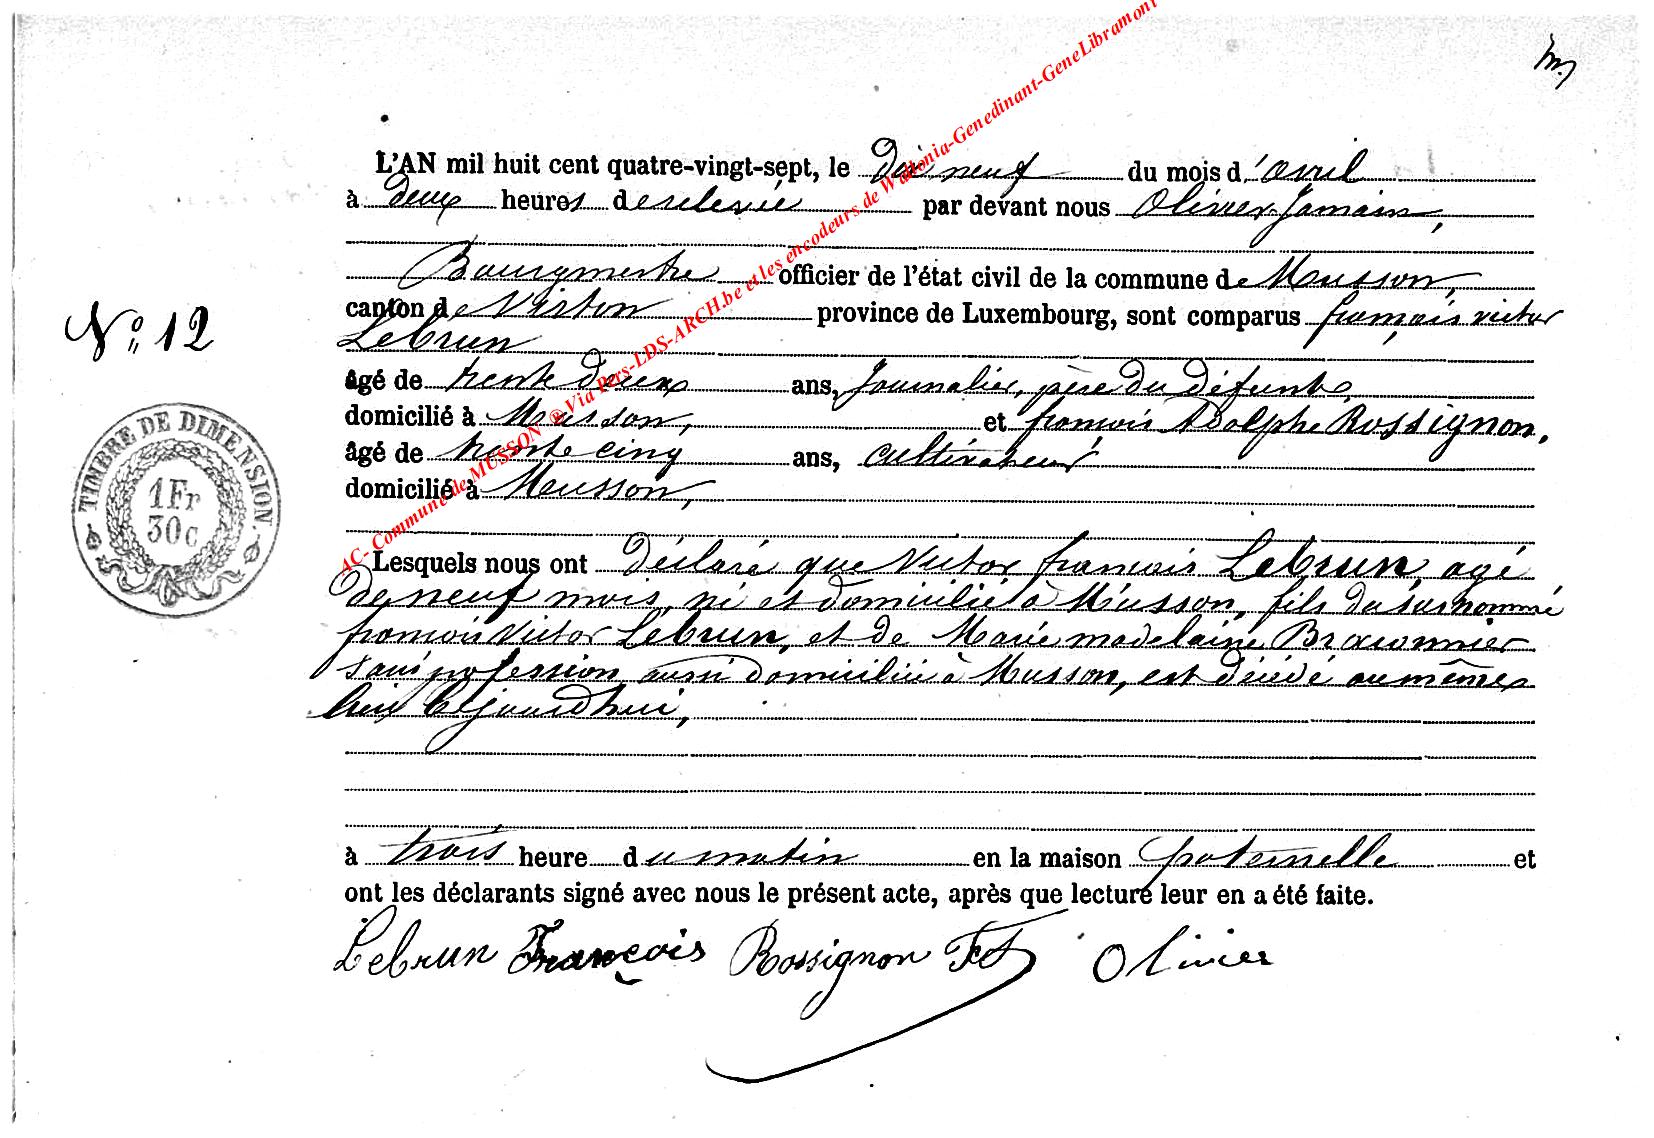 AC- Commune de MUSSON ® Via Pers-LDS-ARCH.be et les encodeurs de Wallonia-Genedinant-GeneLibramont
L'AN mil huit cent quatre-vingt-sept, le dix neuf du mois d'avril
à deux heures de relevée par devant nous Olivier Jamain,
Bourgmestre officier de l'état civil de la commune de Musson,
N° 12
canton de Virton province de Luxembourg, sont comparus françois victor
Lebrun
âgé de trente deux ans, Journalier, père du défunt,
domicilié à Musson, et françois Adolphe Rossignon,
âgé de trente cinq ans, cultivateur,
domicilié à Musson,
TIMBRE DE DIMENSION.
1Fr
30c
Lesquels nous ont déclaré que Victor françois Lebrun, agé
de neuf mois, né et domicilié à Musson, fils du surnommé
françois Victor Lebrun, et de Marie madelaine Braconnier
sans profession, aussi domiciliée à Musson, est décédé au même
lieu Cejourd'hui,
à trois heure du matin en la maison paternelle et
ont les déclarants signé avec nous le présent acte, après que lecture leur en a été faite.
Lebrun François Rossignon Olivier